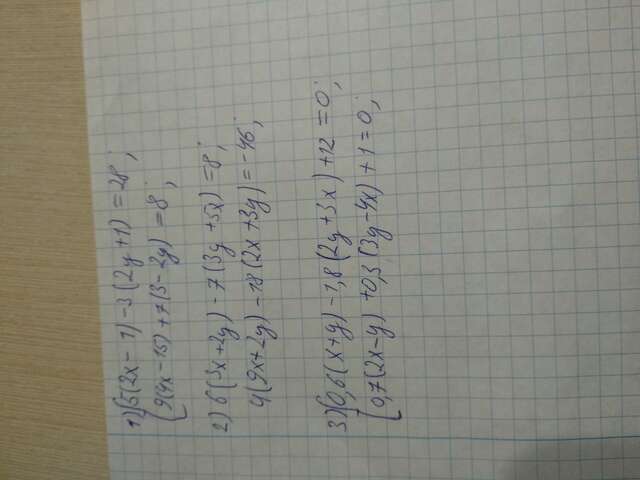 1) {5(2x - 1) - 3(2y + 1) = 28;
{9(4x - 15) + 7(3 - 2y) = 8;
2) 6(3x + 2y) - 7(3y + 5x) = 8;
4(9x + 2y) - 18(2x + 3y) = -46;
3) {0,6(x + y) - 1,8(2y + 3x) + 12 = 0;
{0,7(2x - y) + 0,3(3y - 4x) + 1 = 0;